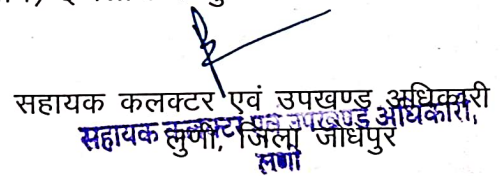 सहायक कलक्टर एवं उपखण्ड अधिकारी
सहायक कलक्टर एवं उपखण्ड अधिकारी,
लुणी, जिला जोधपुर
लूणी